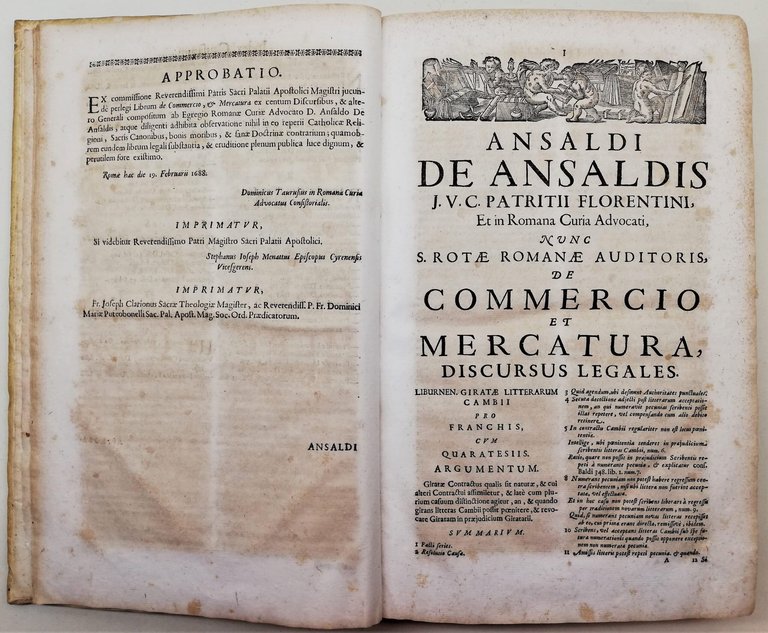 APPROBATIO.
EX commissione Reverendissimi Patris Sacri Palatii Apostolici Magistri jucun-
dè perlegi Librum de Commercio, & Mercatura ex centum Discursibus, & alte-
ro Generali compositum ab Egregio Romanæ Curiæ Advocato D. Ansaldo De
Ansaldis, atque diligenti adhibita observatione nihil in eo reperii Catholicæ Reli-
gioni, Sacris Canonibus, bonis moribus, & sanæ Doctrinæ contrarium; quamob-
rem eundem librum legali substantia, & eruditione plenum publica luce dignum, &
perutilem fore existimo.
Romæ hac die 19. Februarii 1688.
Dominicus Taurusius in Romana Curia
Advocatus Consistorialis.
IMPRIMATVR,
Si videbitur Reverendissimo Patri Magistro Sacri Palatii Apostolici.
Stephanus Ioseph Menattus Episcopus Cyrenensis
Vicesgerens.
IMPRIMATVR,
Fr. Joseph Clarionus Sacræ Theologiæ Magister, ac Reverendiss. P. Fr. Dominici
Mariæ Puteobonelli Sac. Pal. Apost. Mag. Soc. Ord. Prædicatorum.
ANSALDI
1
ANSALDI
DE ANSALDIS
J. V. C. PATRITII FLORENTINI,
Et in Romana Curia Advocati,
NUNC
S. ROTÆ ROMANÆ AUDITORIS,
DE
COMMERCIO
ET
MERCATURA,
DISCURSUS LEGALES.
LIBURNEN. GIRATÆ LITTERARUM
CAMBII
PRO
FRANCHIS,
CVM
QUARATESIIS.
ARGUMENTUM.
Giratæ Contractus qualis sit naturæ, & cui
alteri Contractui assimiletur, & latè cum plu-
rium casuum distinctione agitur, an, & quando
girans litteras Cambii possit pœnitere, & revo-
care Giratam in præjudicium Giratarii.
SVMMARIVM.
1 Facti series.
2 Resolutio Causæ.
3 Quid agendum, ubi desinunt Authoritates punctuales.
4 Secuta decoctione adjecti post litterarum acceptatio-
nem, an qui numeravit pecunias scribenti possit
illas repetere, vel compensando cum alio debito
retinere.
5 In contractu Cambii regulariter non est locus pœni-
tentiæ.
Intellige, ubi pœnitentia tenderet in præjudicium
scribentis litteras Cambii, num. 6.
Ratio, quare non possit in præjudicium Scribentis re-
peti à numerante pecunia, & explicatur cons.
Baldi 348. lib. 1. num. 7.
8 Numerans pecuniam non potest habere regressum con-
tra scribentem, nisi ubi littera non fuerint accep-
tatæ, vel effectuatæ.
Et in hoc casu non potest scribens liberari à regressu
per traditionem novarum litterarum, num. 9.
Quid, si numerans pecuniam novas litteras recepisset
ab eo, cui prima erant directæ, remissivè, ibidem.
10 Scribens, vel acceptans litteras Cambii sub spe fu-
turæ numerationis quando possit opponere exceptio-
nem non numeratæ pecuniæ.
11 Amissis litteris potest repeti pecunia, & quando.
A
12 Si